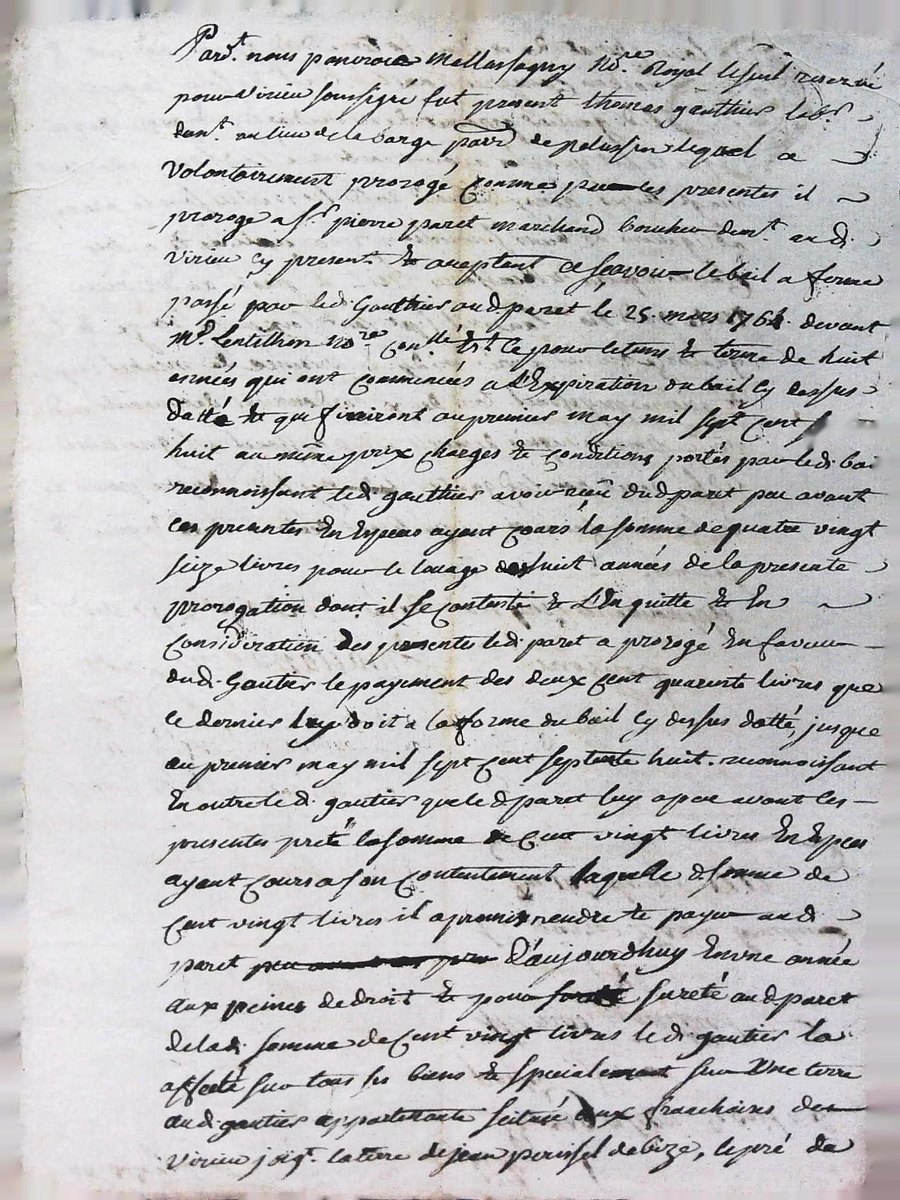 Pard.t nous poncrace Mellassagny No.re Royal le seul reservé
pour Virieu soussigné fut present thomas gauthier lab.r
dem.t au lieu de la barge parr.e de pelussin lequel a
Volontairement prorogé comme par les presentes il
proroge a s.r pierre paret marchand boucher dem.t aud.
Virieu cy present & aceptent a sçavoir le bail a ferme
passé par led. Gauthier aud paret le 25 mars 1764 devant
M.e Lentillon No.re con.llé & ce pour le tems & terme de huit
années qui ont commencées a L'Expiration du bail cy dessus
datté & qui finiront au premier may mil sept cent
huit au même prix charges & conditions portés par led. bai
reconnoissant led. gauthier avoir reçu dud paret par avant
ces presentes En Especes ayant cours la somme de quatre vingt
seize livres pour le louage des huit années de la presente
prorogation dont il se contente & L'En quitte & En
Consideration des presentes led. paret a prorogé En faveur
dud. Gautier le payement des deux cent quarente livres que
ce dernier luy doit a la forme du bail cy dessus datté, jusque
au premier may mil sept cent septente huit. reconnoissant
En outre led. gautier que led paret luy a par avant ces
presentes preté la somme de cent vingt livres En Especes
ayant cours a son contentement laquelle d somme de
cent vingt livres il a promis rendre & payer aud.
paret d'aujourdhuy En une année
aux peines de droit & pour sureté aud paret
de lad. somme de cent vingt livres led. gautier la
affecté sur tous ses biens & specialement sur Une terre
aud. gautier appartenante scituée aux franchises de
Virieu joig.t la terre de jean perussel de bize, le pré de